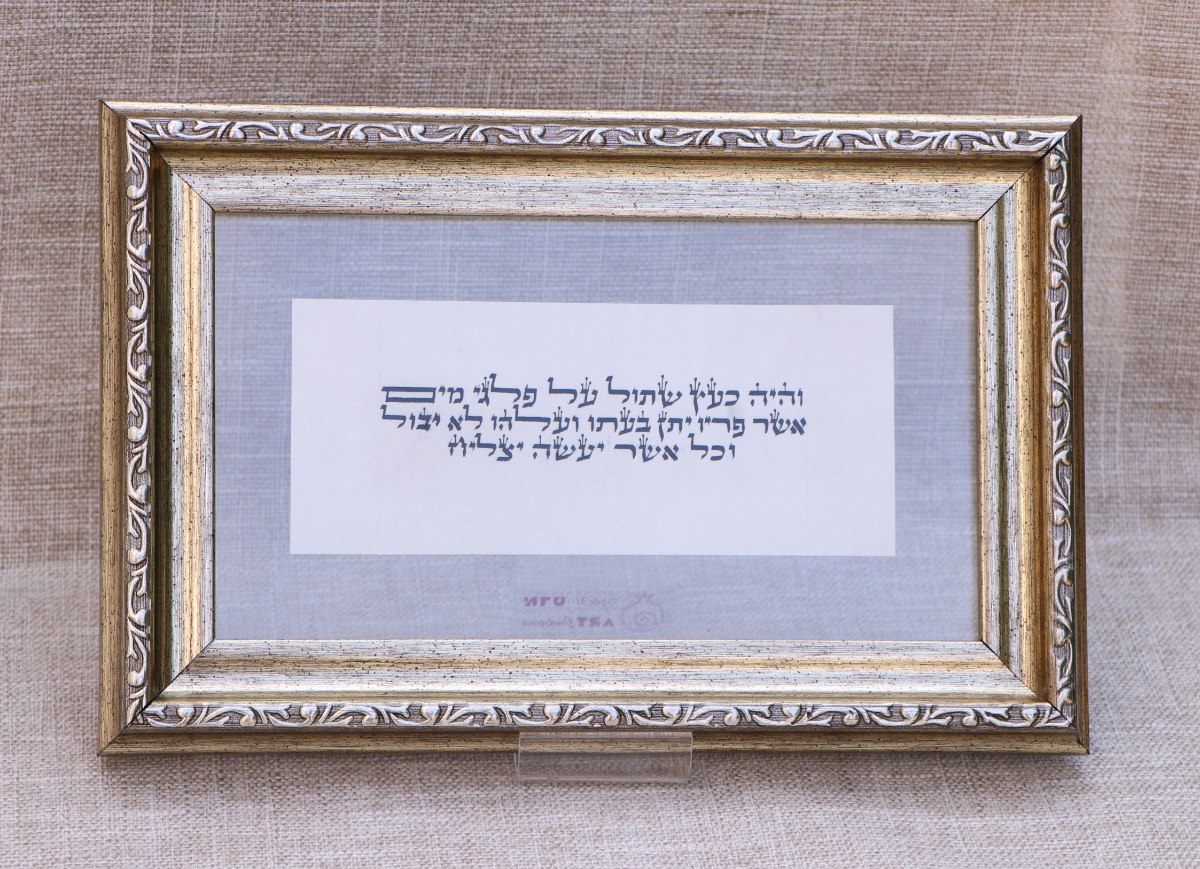 והיה כעץ שתול על פלגי מים
אשר פריו יתן בעתו ועלהו לא יבול
וכל אשר יעשה יצליח
ארט
ART Judaica